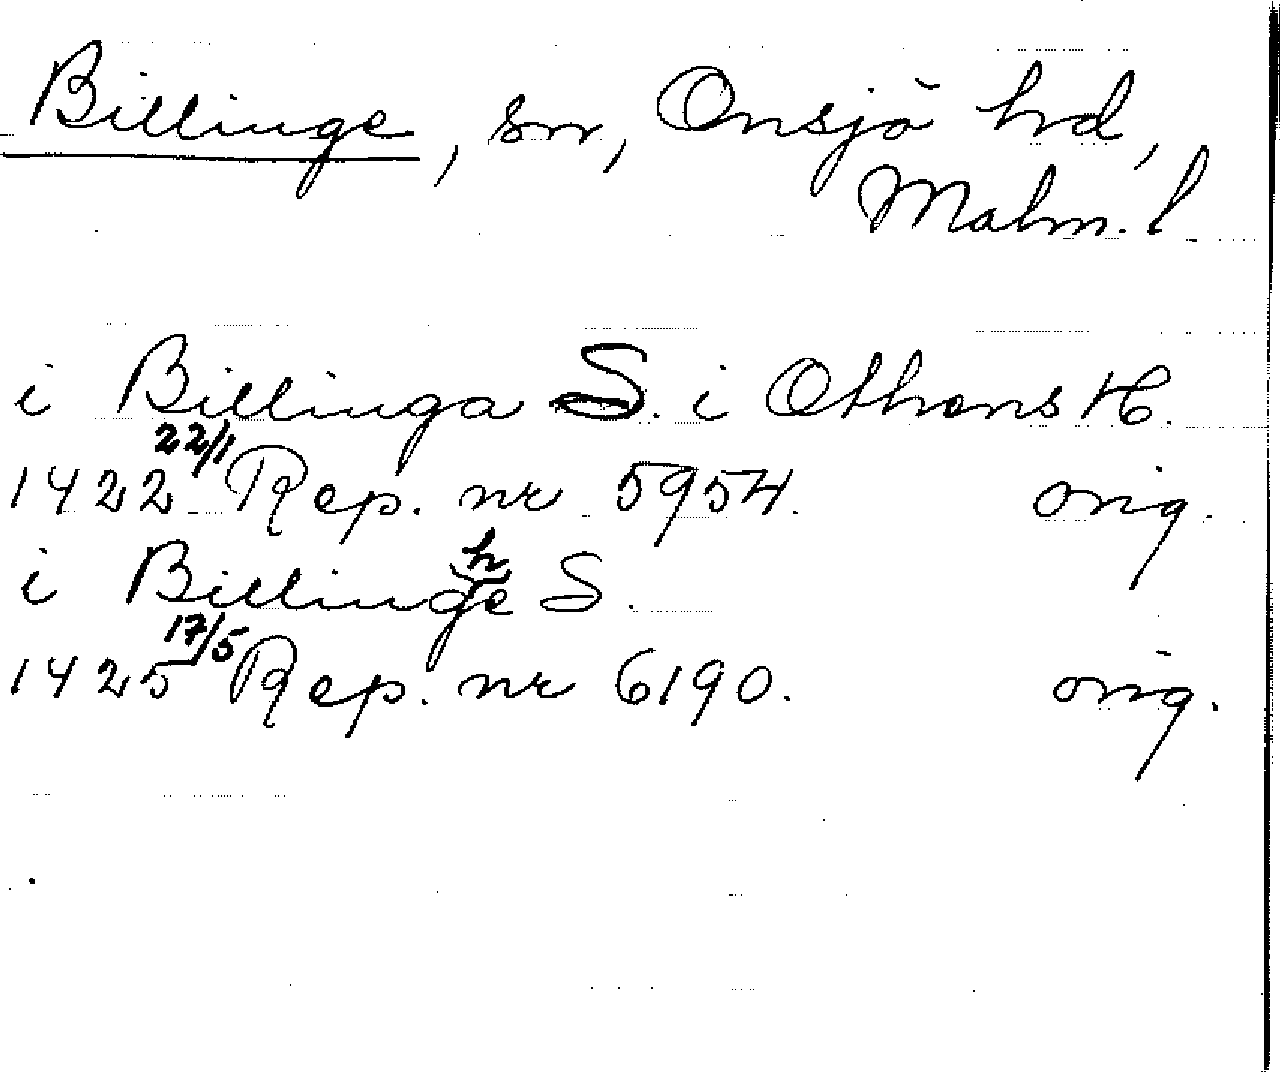 Billinge, sn, Onsjö hd,
Malm. l.
i Billinga S. i Othens H.
1422 22/1 Rep. nr 5954. orig.
i Billinghe S.
1425 17/5 Rep. nr 6190. orig.